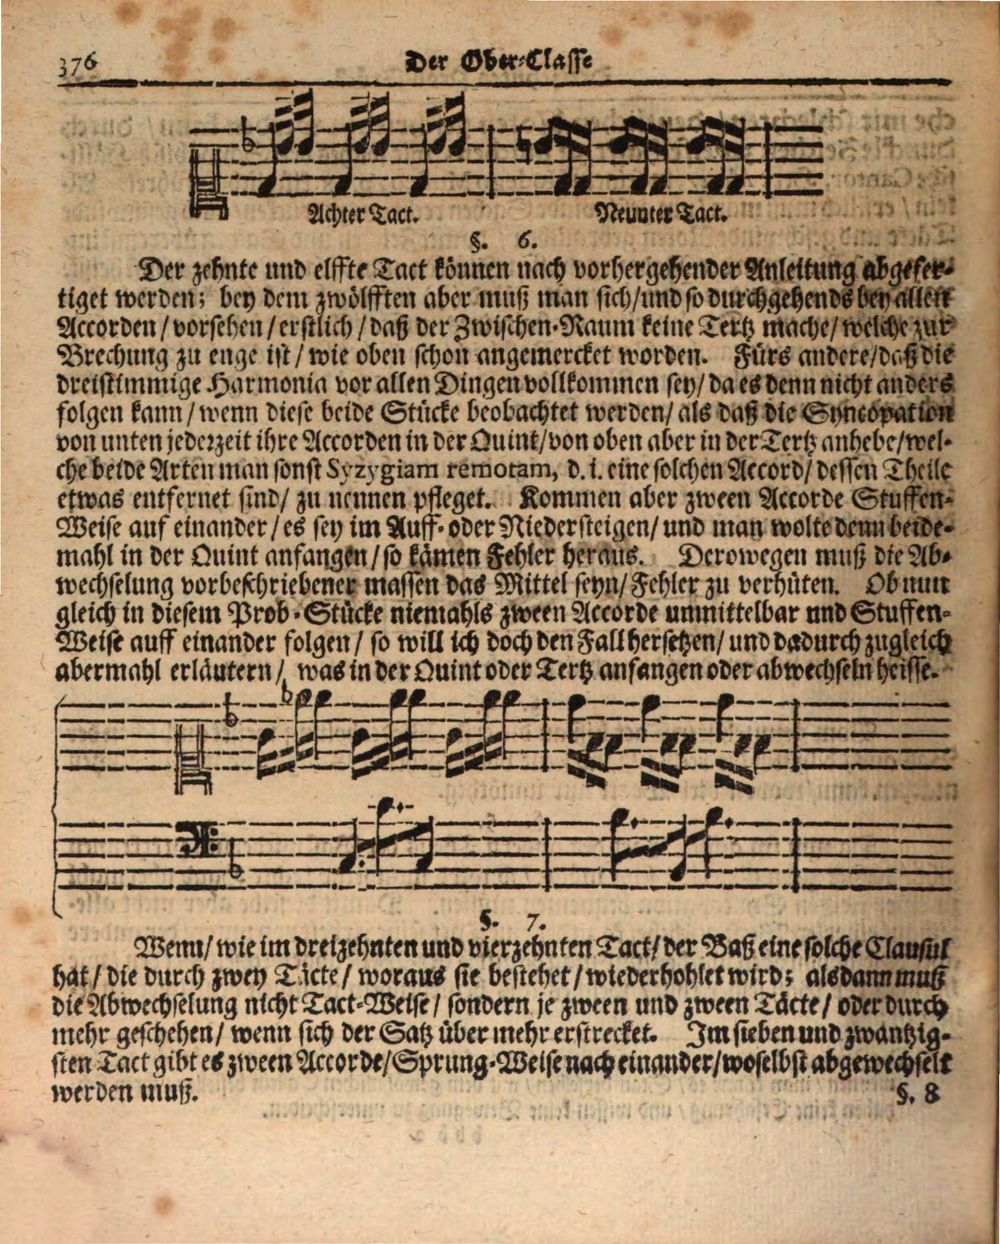 376
Der Ober-Classe
Achter Tact. Neunter Tact.
§. 6.
Der zehnte und elffte Tact können nach vorhergehender Anleitung abgefer-
tiget werden; bey dem zwölfften aber muß man sich/und so durchgehends bey allen
Accorden/vorsehen/erstlich/daß der Zwischen-Raum keine Tertz mache/welche zur
Brechung zu enge ist/wie oben schon angemercket worden. Fürs andere/daß die
dreistimmige Harmonia vor allen Dingen vollkommen sey/da es denn nicht anders
folgen kann/wenn diese beide Stücke beobachtet werden/als daß die Syncopation
von unten jederzeit ihre Accorden in der Quint/von oben aber in der Tertz anhebe/wel-
che beide Arten man sonst Syzygiam remotam, d. i. eine solchen Accord/dessen Theile
etwas entfernet sind/zu nennen pfleget. Kommen aber zween Accorde Stuffen-
Weise auf einander/es sey im Auff- oder Niedersteigen/und man wolte denn beide-
mahl in der Quint anfangen/so kämen Fehler heraus. Derowegen muß die Ab-
wechselung vorbeschriebener massen das Mittel seyn/Fehler zu verhüten. Ob nun
gleich in diesem Prob-Stücke niemahls zween Accorde unmittelbar und Stuffen-
Weise auff einander folgen/so will ich doch den Fall hersetzen/und dadurch zugleich
abermahl erläutern/ was in der Quint oder Tertz anfangen oder abwechseln heisse.
§. 7.
Wenn/wie im dreizehnten und vierzehnten Tact/der Baß eine solche Clausul
hat/die durch zwey Täcte/woraus sie bestehet/wiederhohlet wird; alsdann muß
die Abwechselung nicht Tact-Weise/sondern je zween und zween Täcte/oder durch
mehr geschehen/wenn sich der Satz über mehr erstrecket. Im sieben und zwantzig-
sten Tact gibt es zween Accorde/Sprung-Weise nach einander/woselbst abgewechselt
werden muß.
§. 8